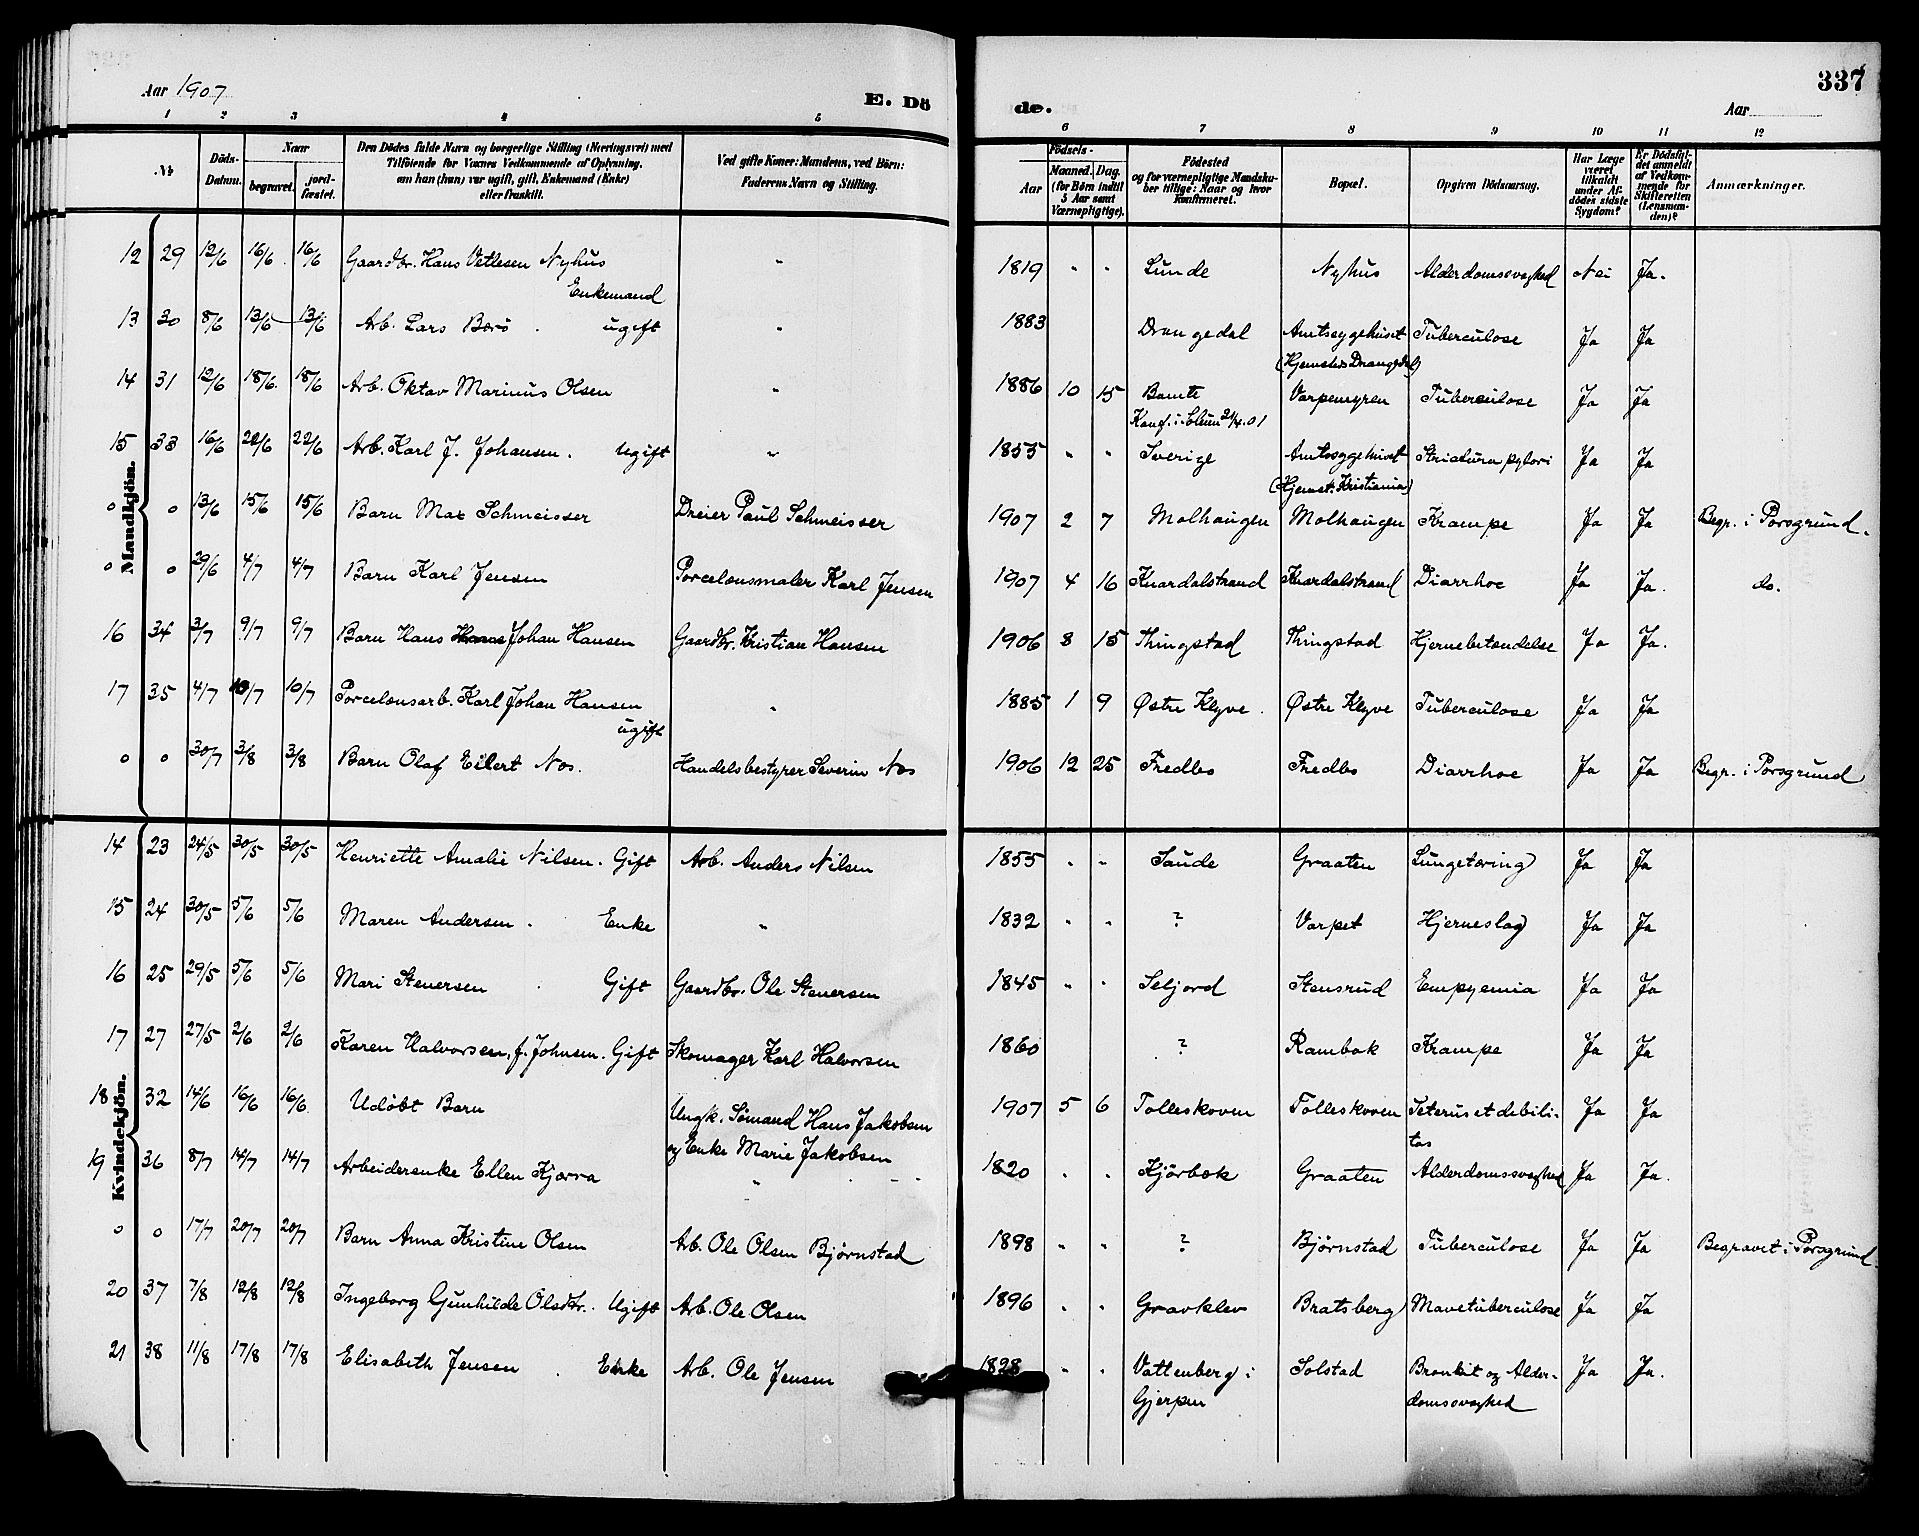 Aar 1907
E. Dö
de.
Aar
337
1 2 3 4 5 6 7 8 9 10 11 12
№
Döds-Datum.
Naar
begravet.
jord-fæstet.
Den Dödes fulde Navn og borgerlige Stilling (Næringsvei) med
Tilföiende for Voxnes Vedkommende af Oplysning,
om han (hun) var ugift, gift, Enkemand (Enke)
eller fraskilt.
Ved gifte Koner: Mandens, ved Börn:
Faderens Navn og Stilling.
Födsels-
Aar
Maaned. Dag.
(for Börn indtil
5 Aar samt
Værnepligtige).
Födested
og for værnepligtige Mandska-
ber tillige: Naar og hvor
konfirmeret.
Bopæl.
Opgiven Dödsaarsag.
Har Læge
været
tilkaldt
under Af-
dödes sidste
Sygdom?
Er Dödsfal-
det anmeldt
af Vedkom-
mende for
Skifteretten
(Lensman-
den)?
Anmærkninger.
Mandkjön.
12 29 12/6 16/6 16/6 Gaardbr. Hans Vetlesen Nyhus " 1819 " " Lunde Nyhus Alderdomssvaghed Nei Ja.
Enkemand
13 30 8/6 13/6 13/6 Arb. Lars Berö ugift " 1883 Drangedal Amtssygehuset Tuberculose Ja Ja
(Hjemsted Drangedal)
14 31 12/6 18/6 18/6 Arb. Oktav Marinus Olsen " 1886 10 15 Bamle Varpemyren Tuberculose Ja Ja
Konf. i Solum 21/4.01
15 33 16/6 22/6 22/6 Arb. Karl J. Johansen. Ugift " 1855 " " Sverige Amtssygehuset Strictura pylori Ja Ja
(Hjemst. Kristiania)
0 0 13/6 15/6 15/6 Barn Max Schmeisser Dreier Paul Schmeisser 1907 2 7 Molhaugen Molhaugen Krampe Ja Ja Begr. i Porsgrund.
0 0 29/6 4/7 4/7 Barn Karl Jensen Porcelænsmaler Karl Jensen 1907 4 16 Knardalstrand Knardalstrand Diarrhoe Ja Ja. do.
16 34 3/7 9/7 9/7 Barn Hans Hans Johan Hansen Gaardbr. Kristian Hansen 1906 8 15 Thingstad Thingstad Hjernebetændelse Ja Ja.
17 35 4/7 10/7 10/7 Porcelænsarb. Karl Johan Hansen " 1885 1 9 Østre Klyve. Østre Klyve Tuberculose Ja Ja
ugift
0 0 30/7 3/8 3/8 Barn Olaf Eilert Næs. Handelsbestyrer Severin Næs 1906 12 25 Fredbo Fredbo Diarrhoe Ja Ja Begr. i Porsgrund
Kvindekjön.
14 23 24/5 30/5 30/5 Henriette Amalie Nilsen. Gift Arb. Anders Nilsen 1855 " " Saude Graaten Lungetæring Ja Ja
15 24 30/5 5/6 5/6 Maren Andersen. Enke " 1832 " " ? Varpet Hjerneslag Ja Ja
16 25 29/5 5/6 5/6 Mari Stenersen Gift Gaardbr. Ole Stenersen 1845 " " Seljord Stensrud Empyemia Ja Ja
17 27 27/5 2/6 2/6 Karen Halvorsen, f. Johnsen. Gift Skomager Karl Halvorsen 1860 ? Rambæk Krampe Ja Ja
18 32 14/6 16/6 16/6 Udöbt Barn Ungk. Sömand Hans Jakobsen 1907 5 6 Tolleskoven Tolleskoven Icterus et debili-
og Enke Marie Jakobsen tas Ja Ja
19 36 8/7 14/7 14/7 Arbeiderenke Ellen Kjærra " 1820 " " Kjörbæk Graaten Alderdomssvaghed Ja Ja.
0 0 17/7 20/7 20/7 Barn Anna Kristine Olsen Arb. Ole Olsen Björnstad 1898 " " ? Björnstad Tuberculose Ja Ja Begravet i Porsgrund.
20 37 7/8 12/8 12/8 Ingeborg Gunhilde Olsdtr. Ugift Arb. Ole Olsen 1896 " " Gravklev Bratsberg Mavetuberculose Ja Ja
21 38 11/8 17/8 17/8 Elisabeth Jensen. Enke Arb. Ole Jensen 1828 " " Vattenberg i Solstad Bronkit og Alder- Ja Ja.
Gjerpen domssvaghed